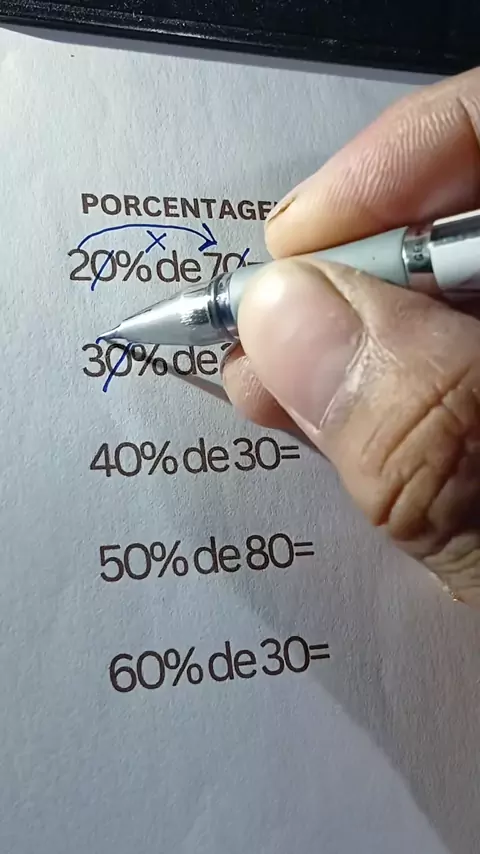 PORCENTAGE
20% de 70
30% de
40% de 30=
50% de 80=
60% de 30=